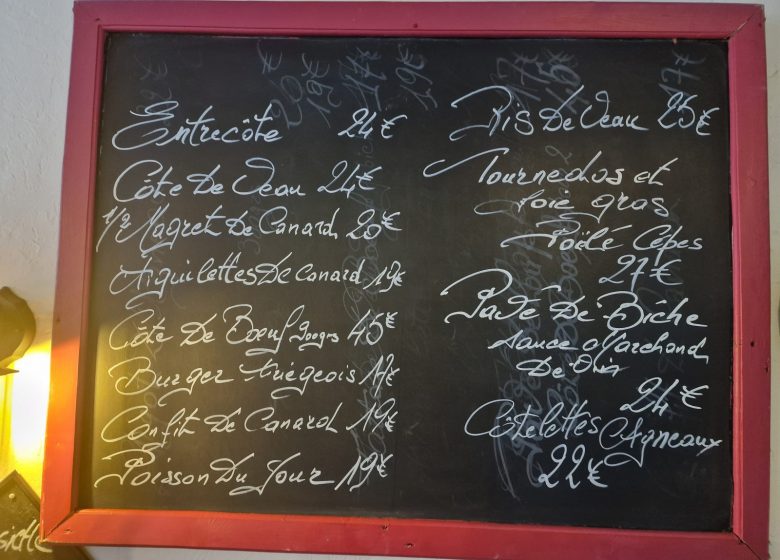 Entrecôte 24€
Côte De Veau 24€
1/2 Magret De Canard 20€
Aiguilettes De Canard 19€
Côte De Boeuf 45€
Burger Ariégeois 17€
Confit De Canard 19€
Poisson Du Jour 19€
Ris De Veau 25€
Tournedos et
foie gras
Poêlé Cèpes
27€
Pavé De Biche
sauce Marchand
De Vin
24€
Côtelettes d'Agneaux
22€